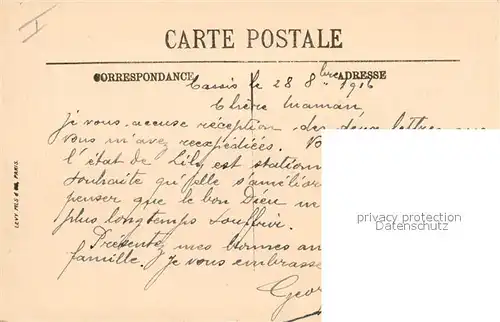 I
CARTE POSTALE
CORRESPONDANCE
ADRESSE
Cassis le 28 8bre 1916
Chère maman,
Je vous accuse réception des deux lettres que
vous m'avez réexpédiées.
l'état de Lily est station
souhaite qu'elle s'amélior
penser que le bon Dieu
plus longtemps souffrir.
Présentez mes bonnes am
famille. Je vous embrasse
Geor
LEVY FILS & Cie, PARIS.
privacy protection
Datenschutz